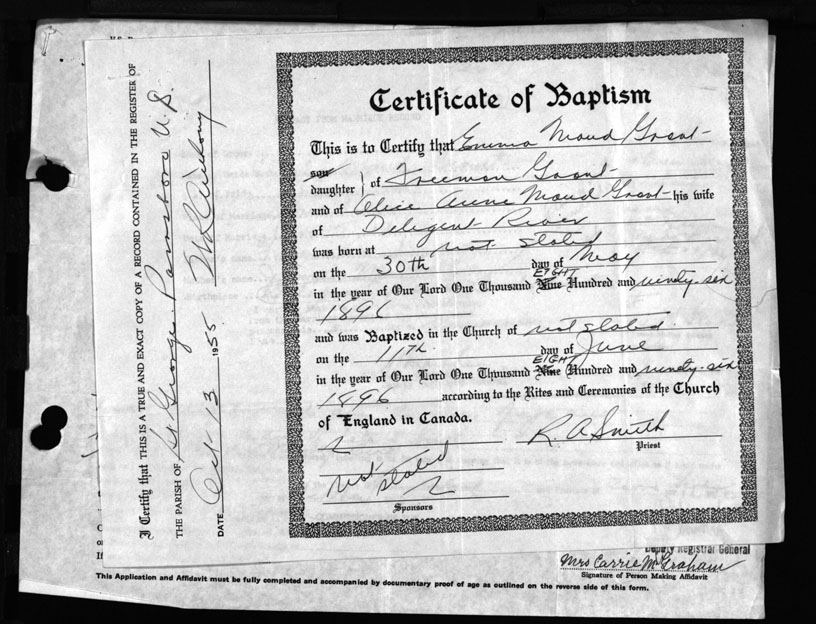 Certificate of Baptism
This is to Certify that Emma Maud Grant
son
daughter } of Freeman Grant
and of Alice Anne Maud Grant his wife
of Deligent River
was born at not stated
on the 30th day of May
EIGHT
in the year of Our Lord One Thousand Nine Hundred and ninety-six
1896
and was Baptized in the Church of not stated
on the 11th day of June
EIGHT
in the year of Our Lord One Thousand Nine Hundred and ninety-six
1896 according to the Rites and Ceremonies of the Church
of England in Canada.
R A Smith
Priest
not stated
Sponsors
I Certify that THIS IS A TRUE AND EXACT COPY OF A RECORD CONTAINED IN THE REGISTER OF
THE PARISH OF St George Parrsboro N.S.
DATE Oct 13 1955
Deputy Registrar General
Mrs Carrie McGraham
Signature of Person Making Affidavit
This Application and Affidavit must be fully completed and accompanied by documentary proof of age as outlined on the reverse side of this form.